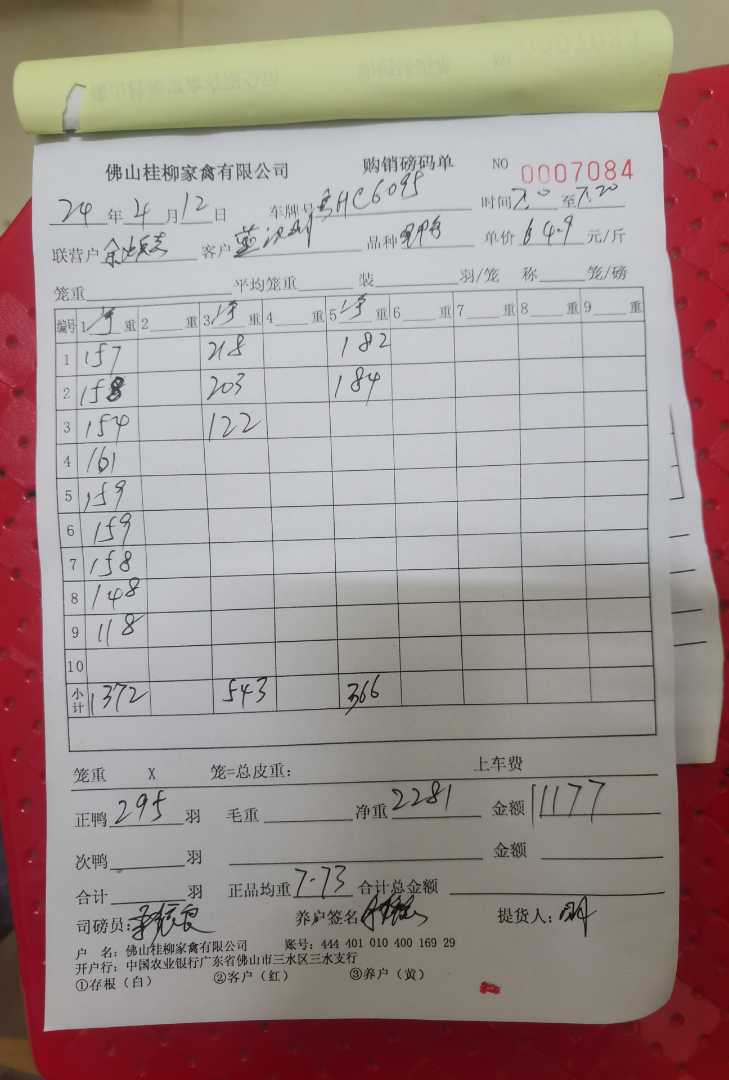 佛山桂柳家禽有限公司 购销磅码单 NO 0007084
24年4月12日 车牌号HC6095 时间7.0至7.20
联营户 客户 品种 单价 4.9元/斤
笼重 平均笼重 装 羽/笼 称 笼/磅
编号 1 重 2 重 3 重 4 重 5 重 6 重 7 重 8 重 9 重
1 157 218 182
2 158 203 184
3 154 122
4 161
5 159
6 159
7 158
8 148
9 118
10
小计 1372 543 366
笼重 X 笼=总皮重: 上车费
正鸭 295 羽 毛重 净重 2281 金额 11177
次鸭 羽 金额
合计 羽 正品均重 7.73 合计总金额
司磅员: 养户签名 提货人:
户 名: 佛山桂柳家禽有限公司 账号: 444 401 010 400 169 29
开户行: 中国农业银行广东省佛山市三水区三水支行
①存根(白) ②客户(红) ③养户(黄)